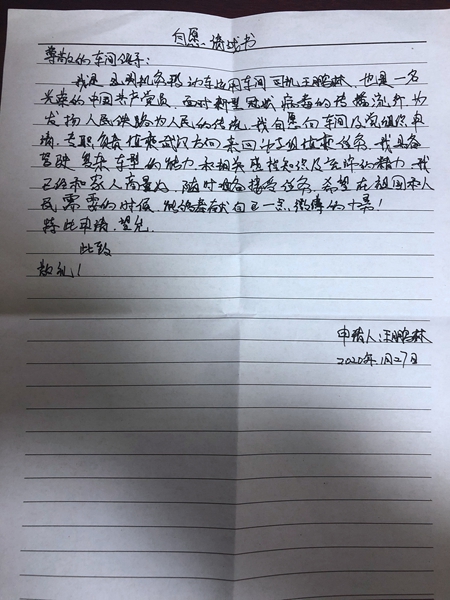 自愿请战书
尊敬的车间领导:
我是 机务段动车运用车间司机王鹏林,也是一名
光荣的中国共产党员,面对新型冠状病毒的传播流行,为
发扬人民铁路为人民的传统,我自愿向车间及党组织申
请,专职负责值乘武汉方向 值乘任务,我具备
驾驶复杂车型的能力和相关 知识及充沛的精力,我
已经和家人商量好,随时准备接受任务,希望在祖国和人
民需要的时候,能够奉献自己一点微薄的力量!
特此申请,望允。
此致
敬礼!
申请人:王鹏林
2020年1月27日